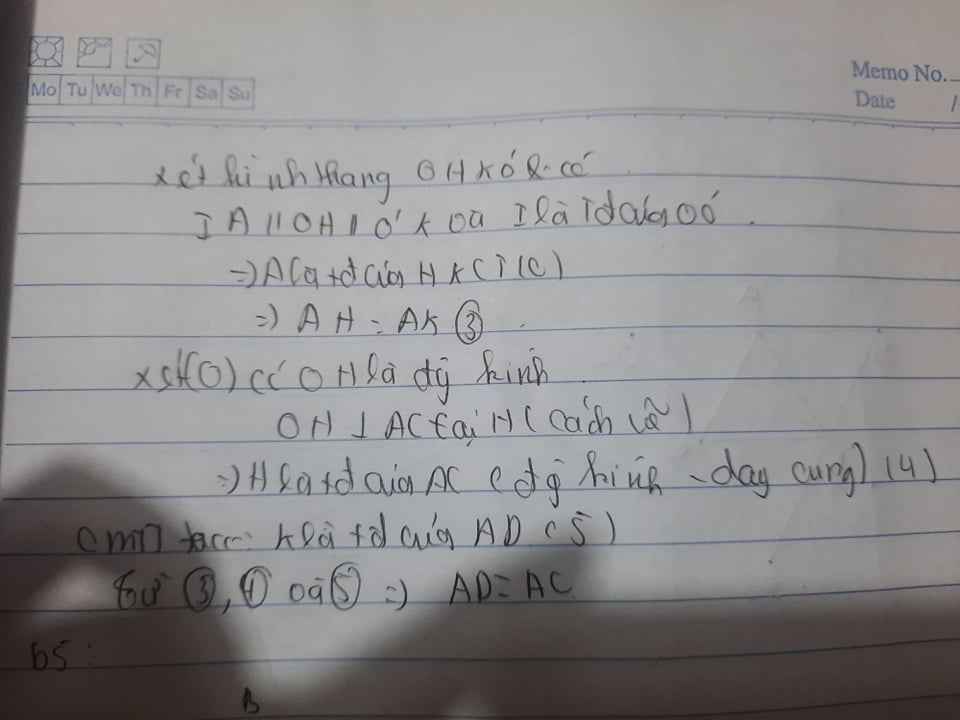 Memo No.
Mo Tu We Th Fr Sa Su
Date /
xét hình thang OHKO' có
IA // OH // O'K và I là Tđ của OO'
=> A là tđ của HK (T/C)
=> AH = AK ③
xét (O) có OH là đg kính
OH ⊥ AC tại H ( cách vẽ )
=> H là tđ của AC ( đg kính - day cung) (4)
CMTT K là tđ của AD (5)
từ ③, ④ và ⑤ => AD = AC
b5 :
B